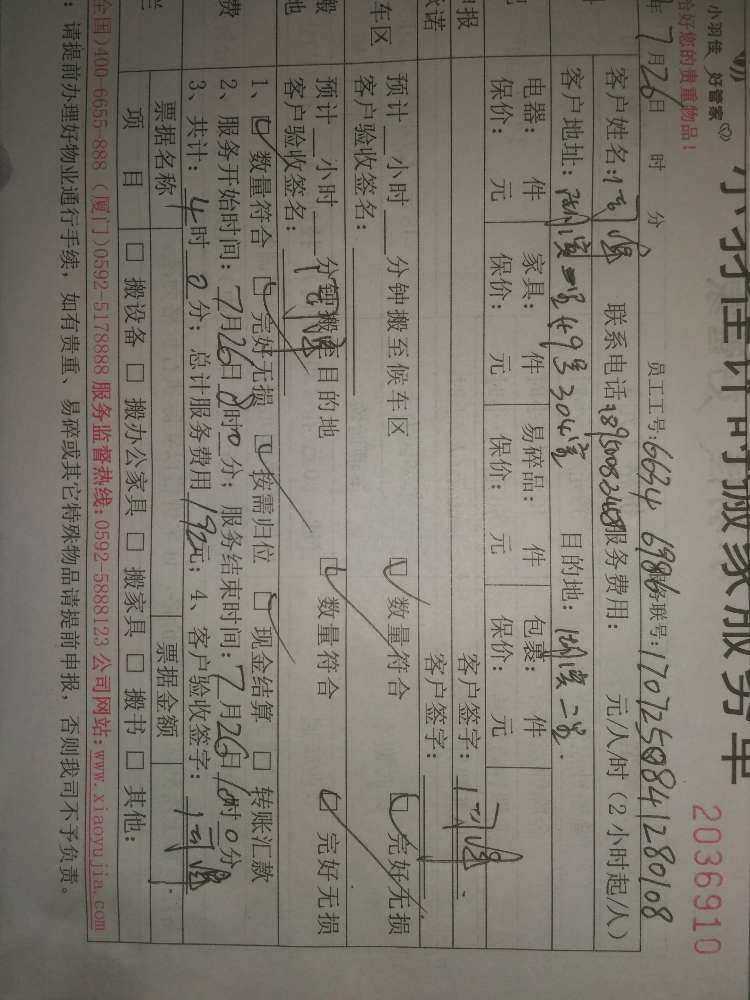 小羽佳 好管家
小羽佳计时搬家服务单
2036910
恰好您的贵重物品！
年7月26日 时 分 员工工号:6634 6986 服务联号:1707250841280108
客户姓名: 联系电话: 服务费用: 元/人/时（2小时起/人）
客户地址: 304室 目的地:
电器: 件 家具: 件 易碎品: 件 包裹: 件
保价: 元 保价: 元 保价: 元 保价: 元
申报 客户签字:
承诺 客户签字:
车区 预计 小时 分钟搬至候车区 □ 数量符合 □ 完好无损
客户验收签名:
搬 预计 小时 分钟搬至目的地 □ 数量符合 □ 完好无损
地 客户验收签名:
1、□ 数量符合 □ 完好无损 □ 按需归位 □ 现金结算 □ 转账汇款
费 2、服务开始时间: 7月26日 时0分; 服务结束时间: 7月26日 时0分
3、共计: 4时0分; 总计服务费用192元; 4、客户验收签字:
票据名称 票据金额
项目 □ 搬设备 □ 搬办公家具 □ 搬家具 □ 搬书 □ 其他:
全国)400-6655-888 (厦门)0592-5178888 服务监督热线:0592-5888123 公司网站:www.xiaoyujia.com
: 请提前办理好物业通行手续, 如有贵重、易碎或其它特殊物品请提前申报, 否则我司不予负责。